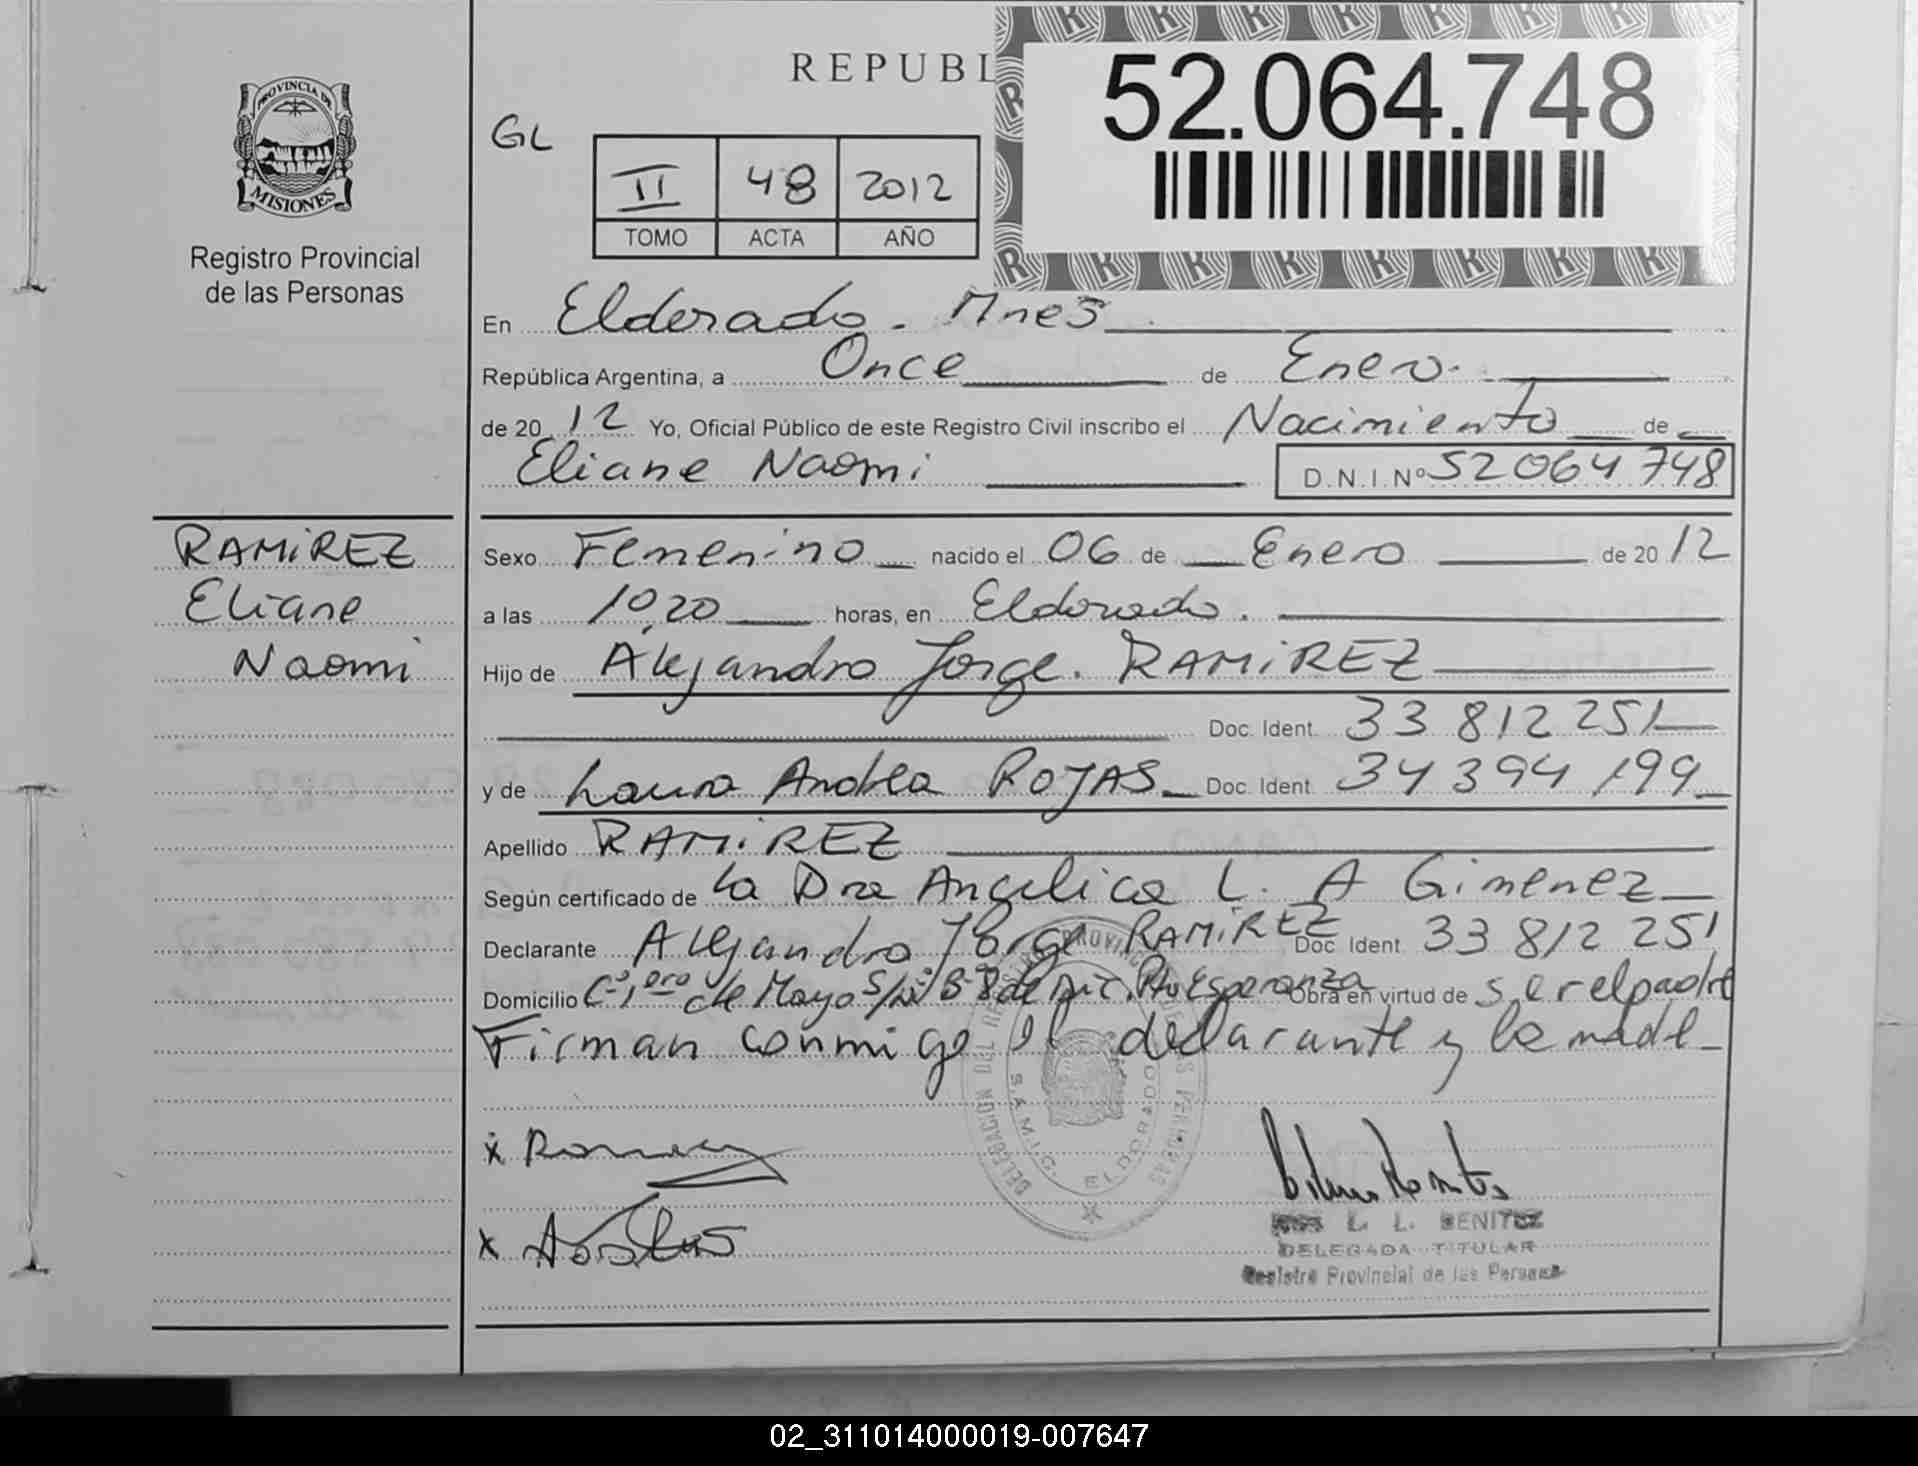 PROVINCIA DE
MISIONES
Registro Provincial
de las Personas
REPUBL
52.064.748
GL
II 48 2012
TOMO ACTA AÑO
En Elderado. Mnes
República Argentina, a Once de Enero.
de 2012 Yo, Oficial Público de este Registro Civil inscribo el Nacimiento de
Eliane Naomi D.N.I.Nº 52 064 748
RAMIREZ
Eliane
Naomi
Sexo Femenino nacido el 06 de Enero de 2012
a las 10,20 horas, en Eldorado.
Hijo de Alejandro Jorge. RAMIREZ
Doc. Ident. 33 812 251
y de Laura Andrea ROJAS Doc. Ident. 34 394 199
Apellido RAMIREZ
Según certificado de la Dra Angelica L. A Gimenez
Declarante Alejandro Jorge RAMIREZ Doc. Ident. 33 812 251
Domicilio C. 1ero de Mayo S/Nº Bº 8 de Dic. Pto Esperanza Obra en virtud de ser el padre
Firman conmigo el declarante y la madre
DELEGACION DEL REGISTRO PROVINCIAL DE LAS PERSONAS
S.A.M.I.C. ELDORADO
x
x
L. L. BENITEZ
DELEGADA TITULAR
Registro Provincial de las Personas
02_311014000019-007647